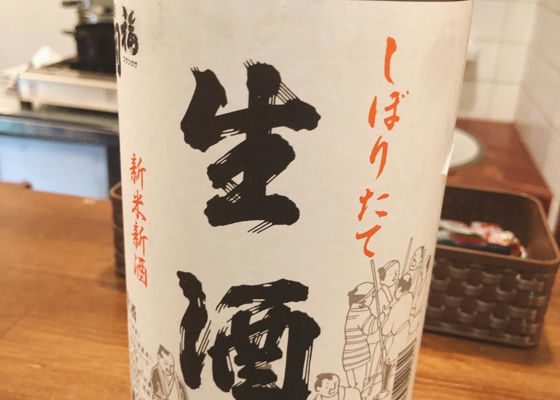 しぼりたて
生酒
新米新酒
福